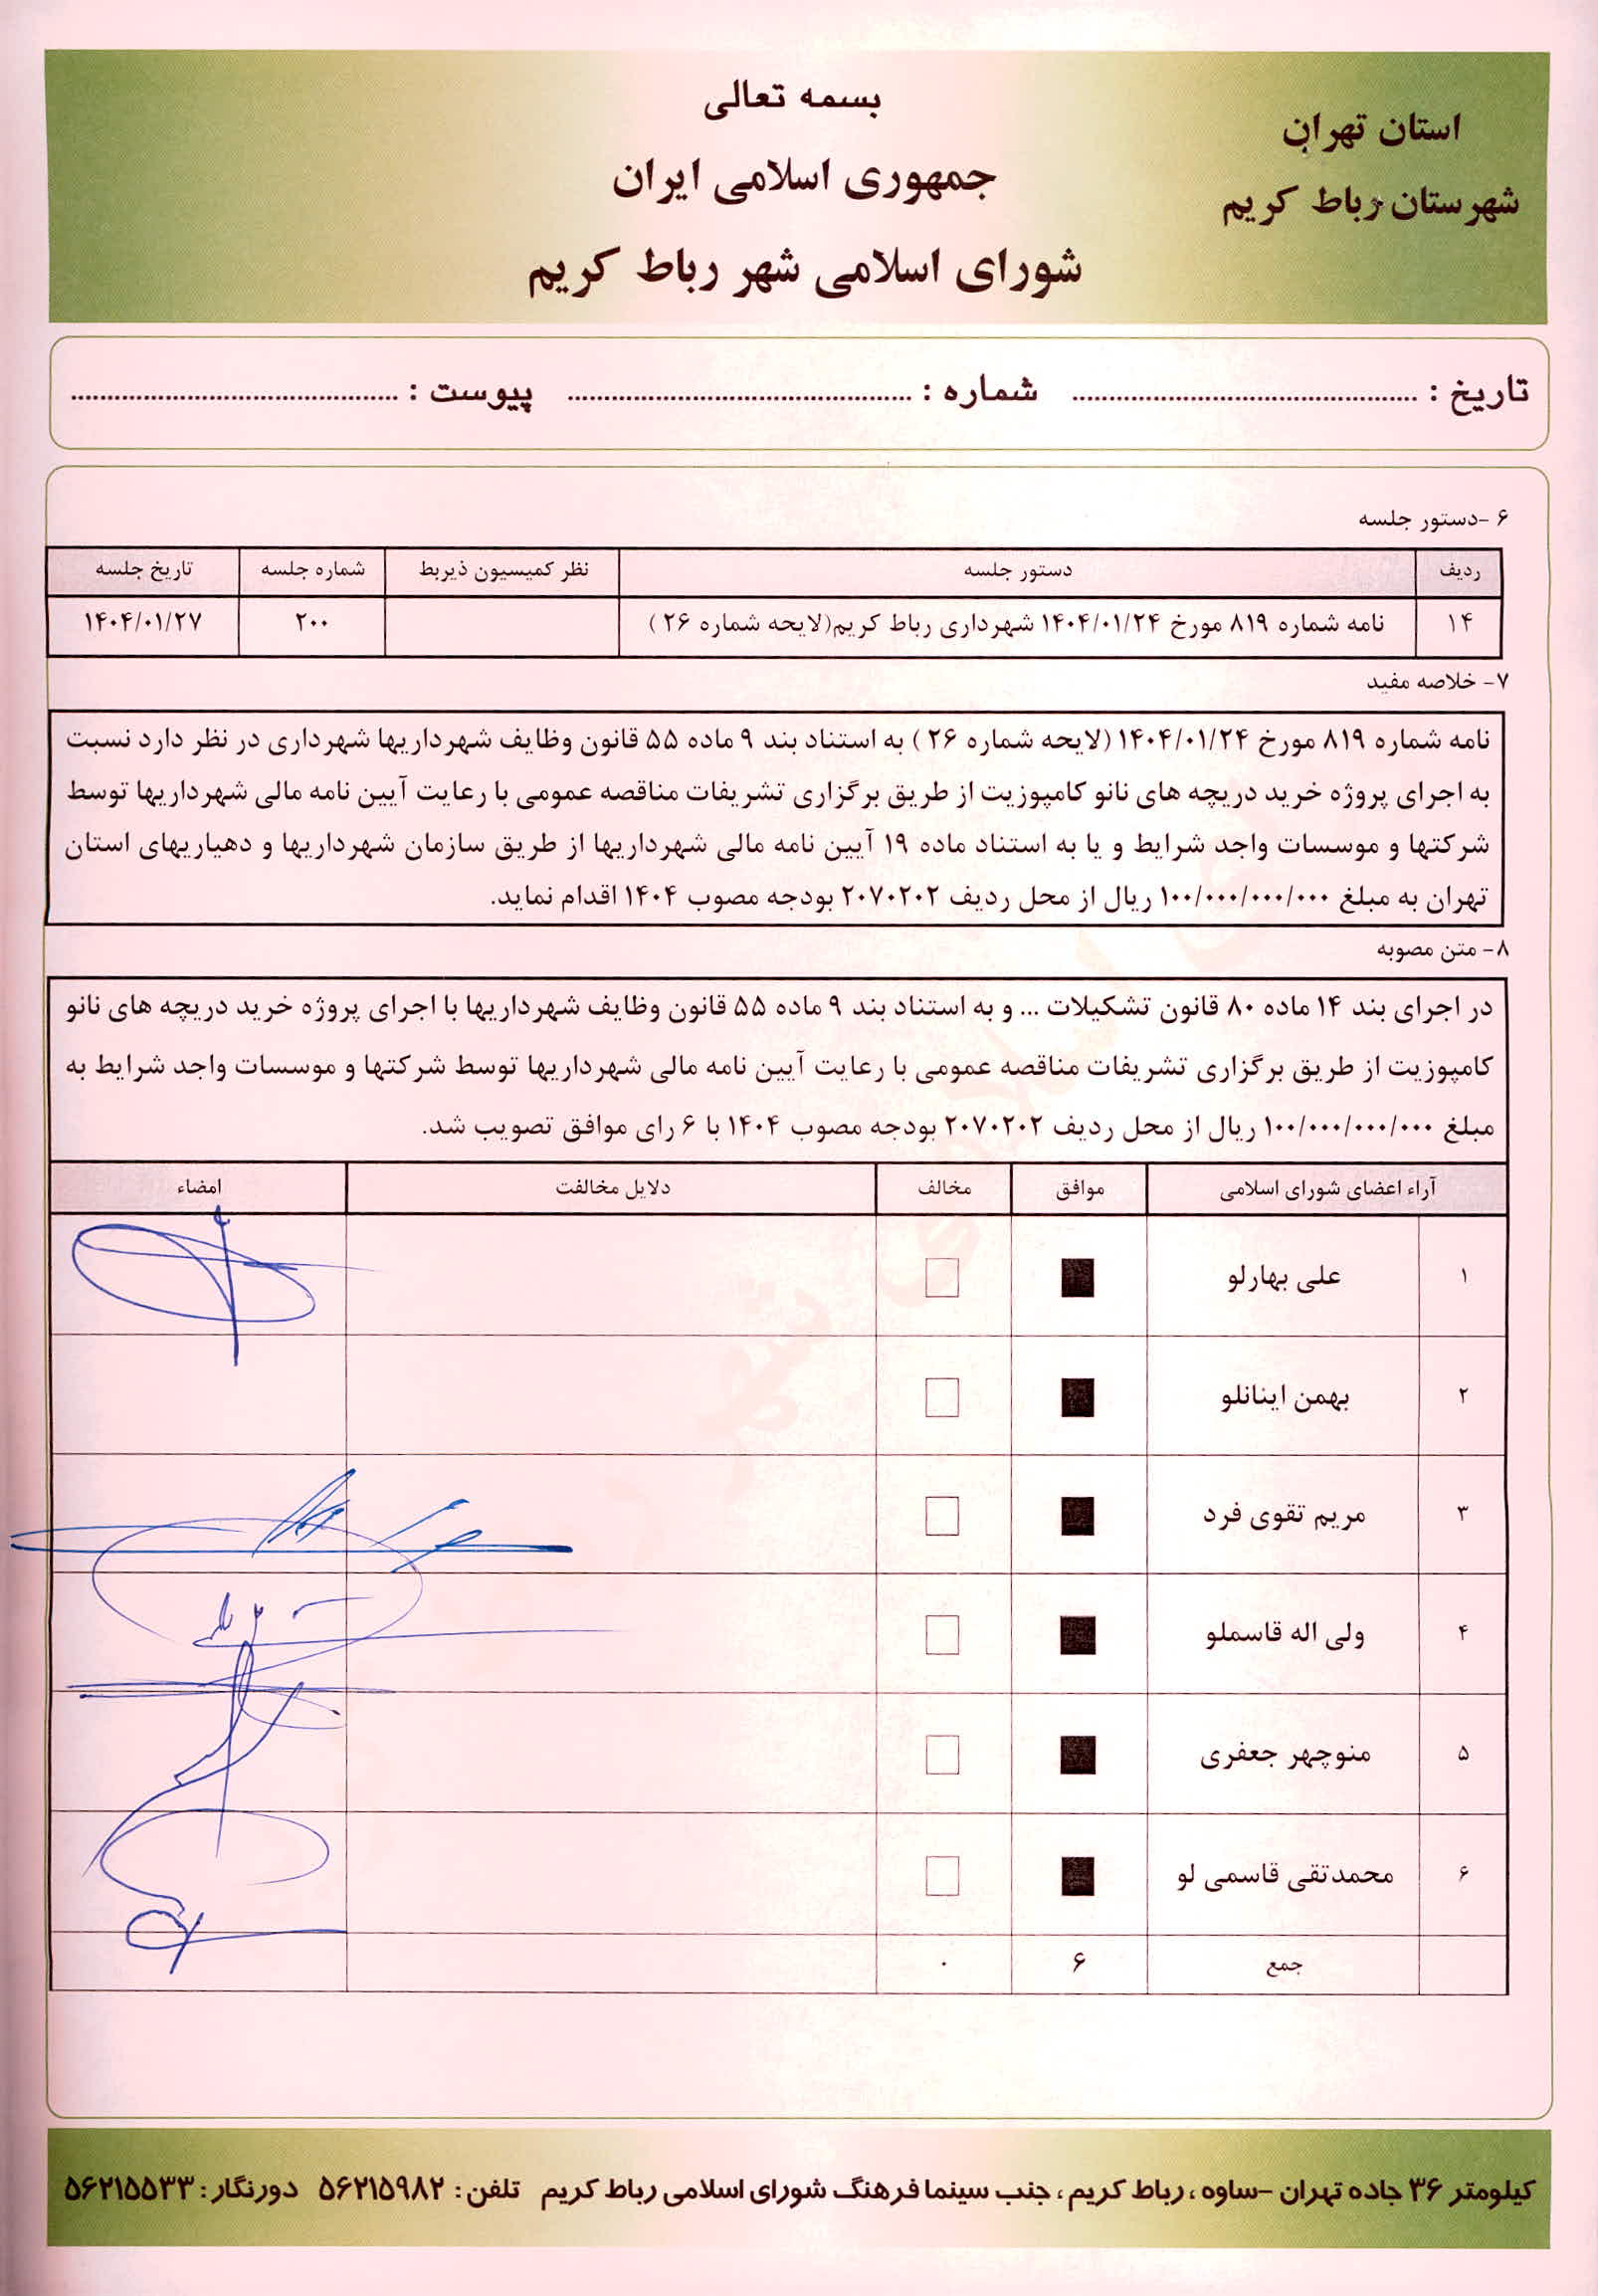 بسمه تعالی
استان تهران
جمهوری اسلامی ایران
شهرستان رباط کریم
شورای اسلامی شهر رباط کریم
تاریخ : ............................................ شماره : ............................................ پیوست : ............................................
۶ -دستور جلسه
ردیف دستور جلسه نظر کمیسیون ذیربط شماره جلسه تاریخ جلسه
۱۴ نامه شماره ۸۱۹ مورخ ۱۴۰۴/۰۱/۲۴ شهرداری رباط کریم(لایحه شماره ۲۶ ) ۲۰۰ ۱۴۰۴/۰۱/۲۷
۷- خلاصه مفید
نامه شماره ۸۱۹ مورخ ۱۴۰۴/۰۱/۲۴ (لایحه شماره ۲۶ ) به استناد بند ۹ ماده ۵۵ قانون وظایف شهرداریها شهرداری در نظر دارد نسبت
به اجرای پروژه خرید دریچه های نانو کامپوزیت از طریق برگزاری تشریفات مناقصه عمومی با رعایت آیین نامه مالی شهرداریها توسط
شرکتها و موسسات واجد شرایط و یا به استناد ماده ۱۹ آیین نامه مالی شهرداریها از طریق سازمان شهرداریها و دهیاریهای استان
تهران به مبلغ ۱۰۰/۰۰۰/۰۰۰/۰۰۰ ریال از محل ردیف ۲۰۷۰۲۰۲ بودجه مصوب ۱۴۰۴ اقدام نماید.
۸- متن مصوبه
در اجرای بند ۱۴ ماده ۸۰ قانون تشکیلات ... و به استناد بند ۹ ماده ۵۵ قانون وظایف شهرداریها با اجرای پروژه خرید دریچه های نانو
کامپوزیت از طریق برگزاری تشریفات مناقصه عمومی با رعایت آیین نامه مالی شهرداریها توسط شرکتها و موسسات واجد شرایط به
مبلغ ۱۰۰/۰۰۰/۰۰۰/۰۰۰ ریال از محل ردیف ۲۰۷۰۲۰۲ بودجه مصوب ۱۴۰۴ با ۶ رای موافق تصویب شد.
آراء اعضای شورای اسلامی موافق مخالف دلایل مخالفت امضاء
۱ علی بهارلو
۲ بهمن اینانلو
۳ مریم تقوی فرد
۴ ولی اله قاسملو
۵ منوچهر جعفری
۶ محمدتقی قاسمی لو
جمع ۶ ۰
کیلومتر ۳۶ جاده تهران -ساوه ، رباط کریم ، جنب سینما فرهنگ شورای اسلامی رباط کریم تلفن : ۵۶۲۱۵۹۸۲ دورنگار : ۵۶۲۱۵۵۳۳